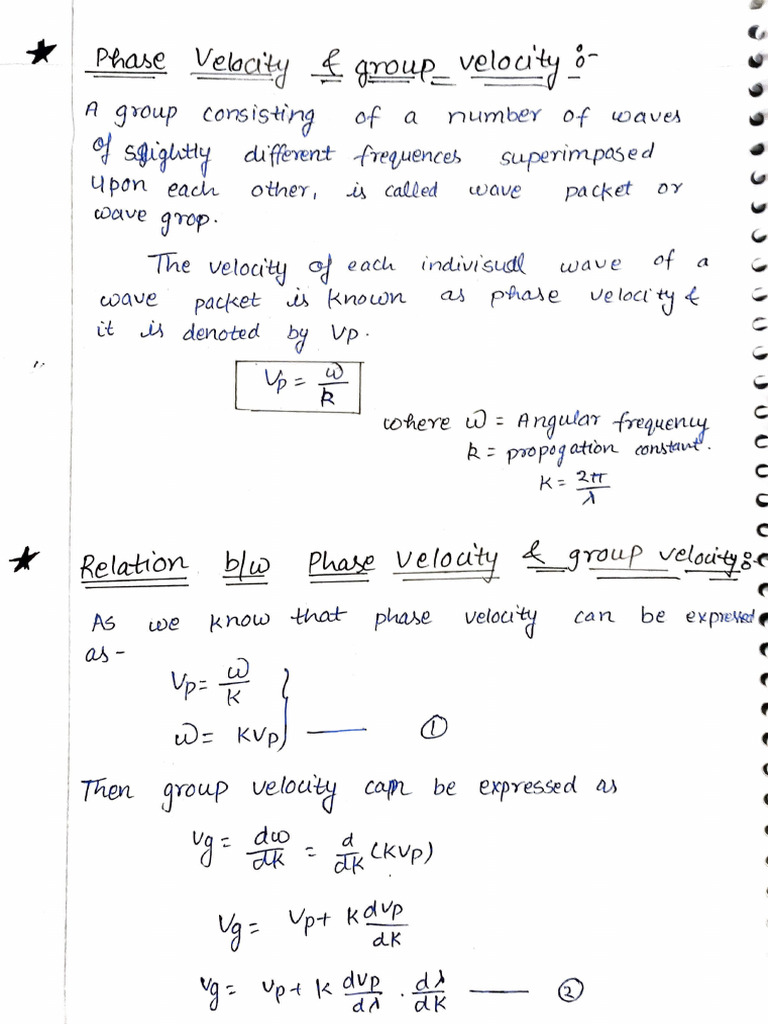 ★ Phase Velocity & group velocity :-
A group consisting of a number of waves
of slightly different frequences superimposed
upon each other, is called wave packet or
wave grop.
The velocity of each indivisudl wave of a
wave packet is known as phase velocity &
it is denoted by Vp.
Vp = ω/k
where ω = Angular frequency
k = propogation constant.
K = 2π/λ
★ Relation b/w Phase Velocity & group velocity :-
As we know that phase velocity can be expressed
as -
Vp = ω/k
ω = KVp } —— ①
Then group velocity can be expressed as
Vg = dω/dk = d/dk (KVp)
Vg = Vp + K dVp/dK
Vg = Vp + K dVp/dλ . dλ/dK —— ②